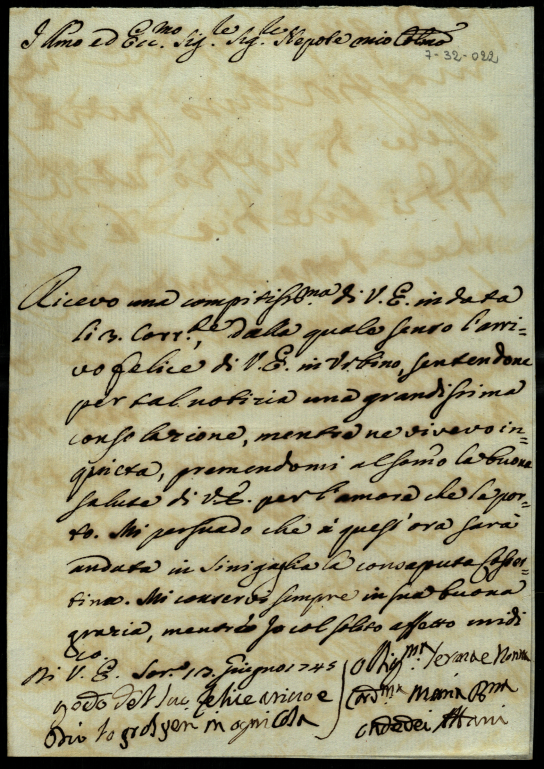 Illmo ed Ecc.mo Sig.le Sig.le Nepote mio Colmo
7-32-022
Ricevo una compitissi.ma di V. E. in data
li 3. Corr.te, dalla quale sento l'arri-
vo felice di V. E. in Urbino, sentendone
per tal notizia una grandissima
consolazione, mentre ne vivevo in-
quieta, premendomi al som̃o la buona
salute di V. E. per l'amore che le por-
to. Mi persuado che à quest'ora sarà
andata in Sinigaglia la consaputa
tina. Mi conservi sempre in sua buona
grazia, mentre Io col solito affetto mi di
co
Di V. E. 13. Giugno 1745
godo del suo felice arivo e
Dio lo
Obbligma Serva e Nonna
Maria
Albani